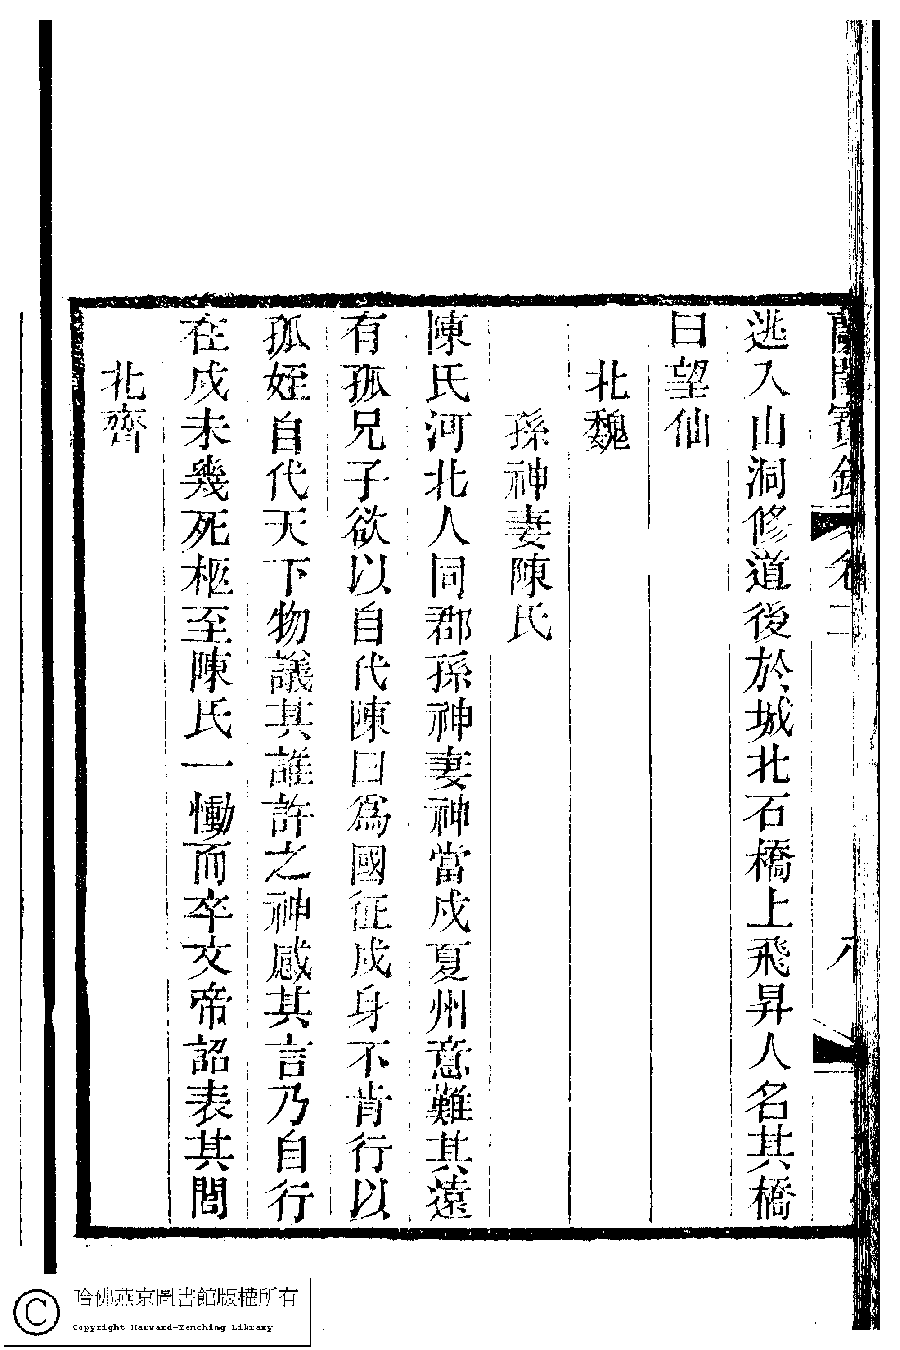 逃入山洞修道後於城北石橋上飛昇人名其橋
曰望仙
北魏
孫神妻陳氏
陳氏河北人同郡孫神妻神當戍夏州意難其遠
有孤兄子欲以自代陳曰為國征戍身不肯行以
孤姪自代天下物議其誰許之神感其言乃自行
在戍未幾死柩至陳氏一慟而卒文帝詔表其閭
北齊
哈佛燕京圖書館版權所有
Copyright Harvard-Yenching Library